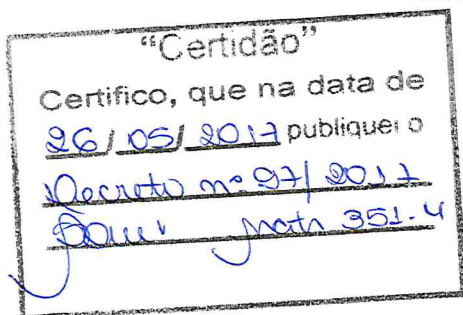 “Certidão”
Certifico, que na data de
26/05/2017 publiquei o
Decreto nº 97/2017
matr 351-4